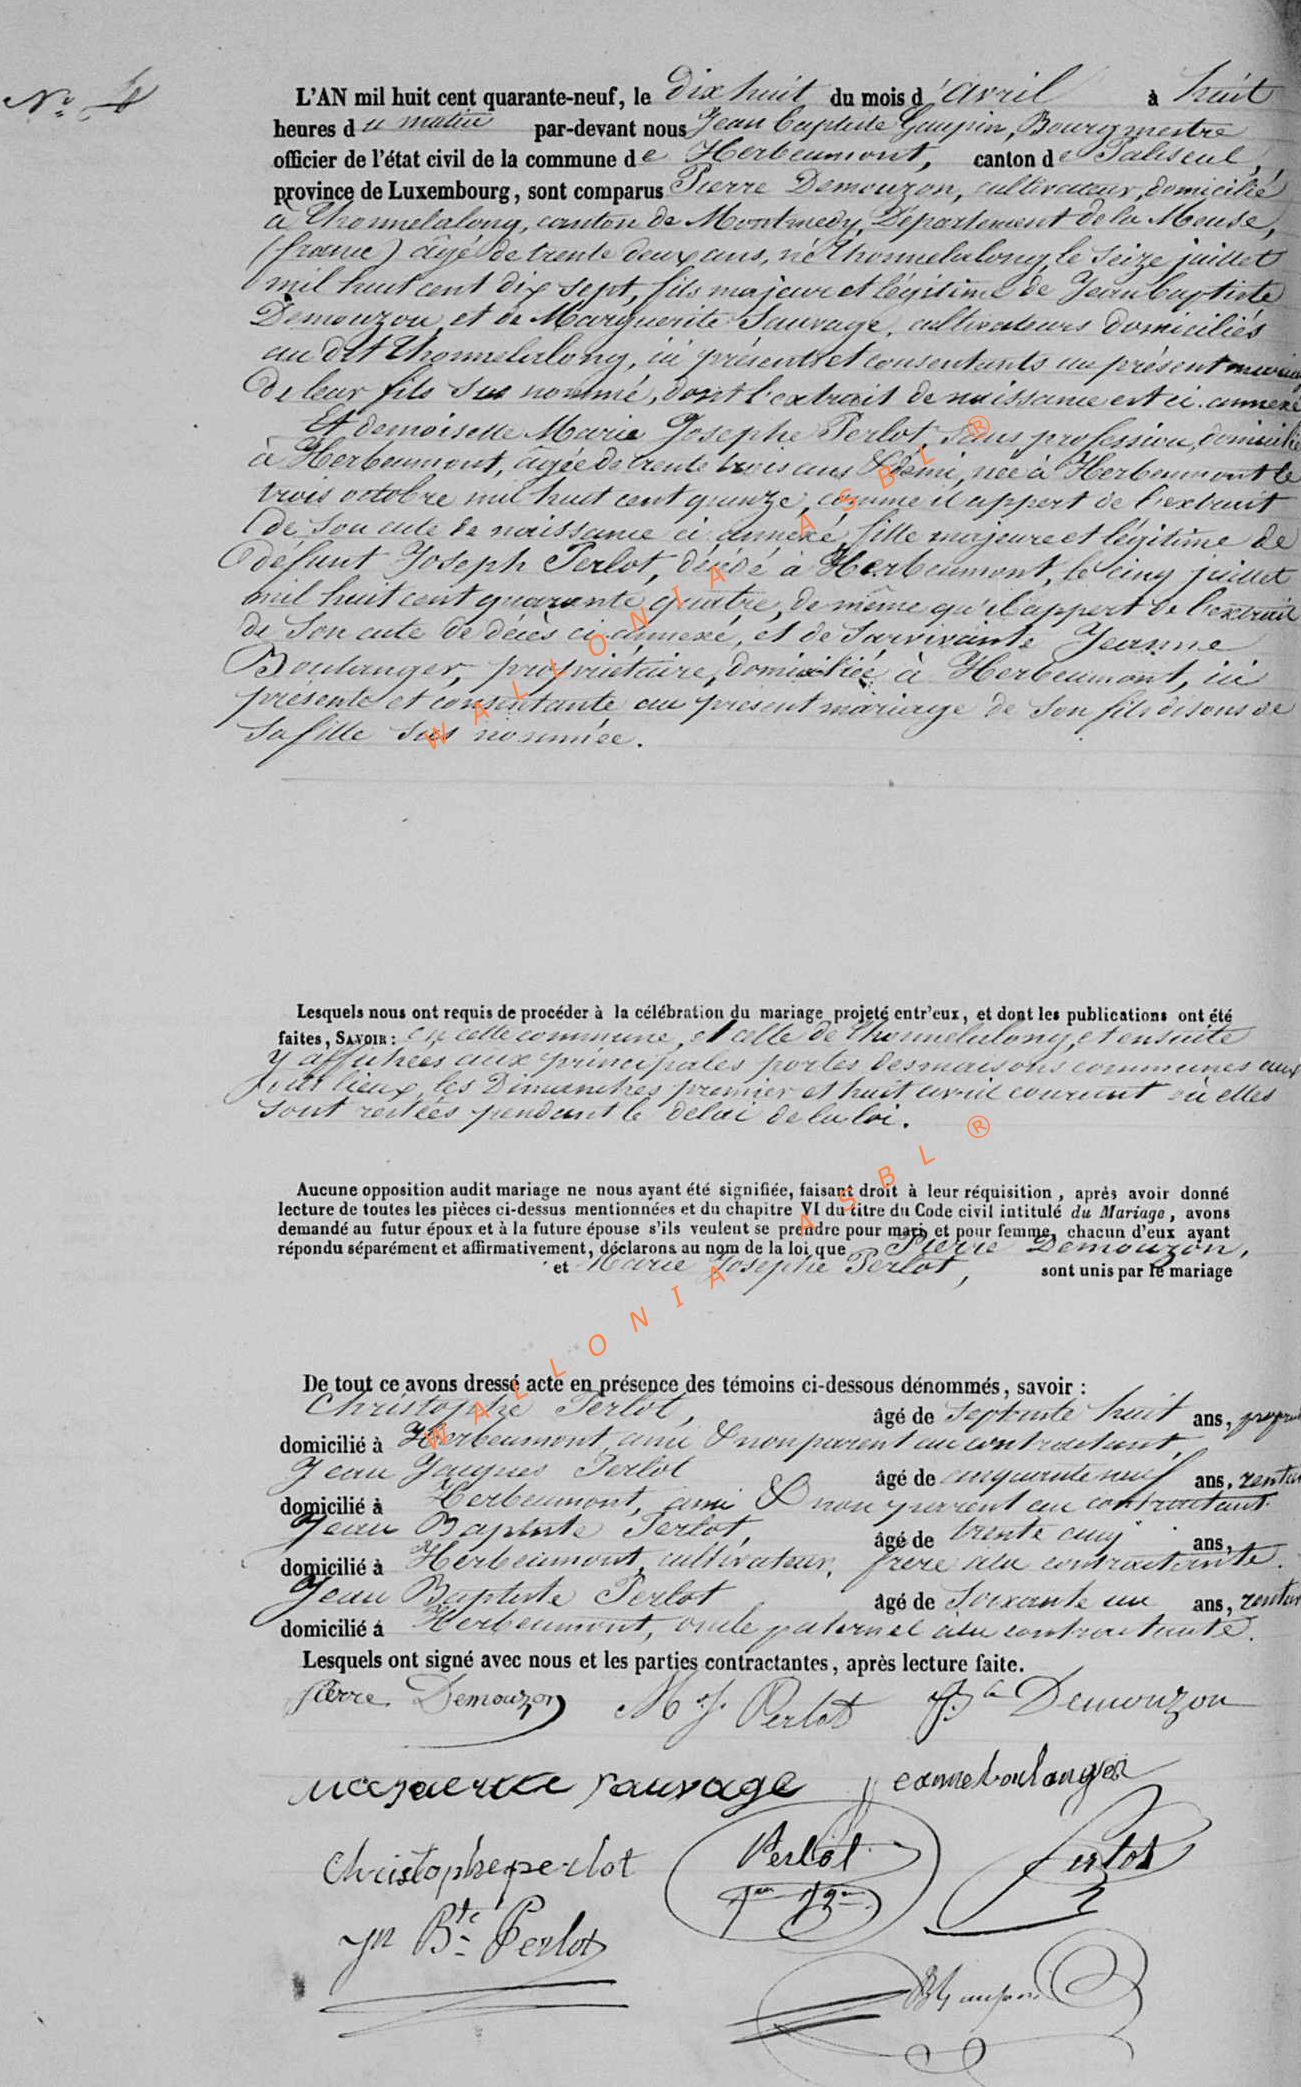 N° 4
L'AN mil huit cent quarante-neuf, le dix huit du mois d'avril à huit
heures du matin par-devant nous Jean baptiste Gaupin, Bourgmestre
officier de l'état civil de la commune de Herbeumont, canton de Paliseul,
province de Luxembourg, sont comparus Pierre Demouzon, cultivateur, domicilié
à Thonnelalong, canton de Montmedy, Département de la Meuse,
(france) âgé de trente deux ans, né Thonnelalong, le seize juillet
mil huit cent dix sept, fils majeur et légitime de Jean baptiste
Demouzon et de Marguerite Sauvage, cultivateurs domiciliés
au dit Thonnelalong, ici présents et consentants au présent
de leur fils sus nommé, dont l'extrait de naissance est ci annexé
Et demoiselle Marie Josephe Perlot, sans profession, domicilié
à Herbeumont, âgée de trente trois ans & demi, née à Herbeumont le
trois octobre mil huit cent quinze, comme il appert de l'extrait
de son acte de naissance ci annexé, fille majeure et légitime de
défunt Joseph Perlot, décédé à Herbeumont, le cinq juillet
mil huit cent quarante quatre, de même qu'il appert de l'extrait
de son acte de décès ci annexé, et de survivante Jeanne
Boulanger, propriétaire, domiciliée à Herbeumont, ici
présente et consentante au présent mariage de son fils disons de
sa fille sus nommée.
WALLONIA ASBL ®
Lesquels nous ont requis de procéder à la célébration du mariage projeté entr'eux, et dont les publications ont été
faites, SAVOIR: en cette commune, et celle de Thonnelalong, et ensuite
y affichées aux principales portes des maisons communes aux
lieux, les Dimanches premier et huit avril courant où elles
sont restées pendant le délai de la loi.
Aucune opposition audit mariage ne nous ayant été signifiée, faisant droit à leur réquisition, après avoir donné
lecture de toutes les pièces ci-dessus mentionnées et du chapitre VI du titre du Code civil intitulé du Mariage, avons
demandé au futur époux et à la future épouse s'ils veulent se prendre pour mari et pour femme, chacun d'eux ayant
répondu séparément et affirmativement, déclarons au nom de la loi que Pierre Demouzon,
et Marie Josephe Perlot, sont unis par le mariage
WALLONIA ASBL ®
De tout ce avons dressé acte en présence des témoins ci-dessous dénommés, savoir :
Christophe Perlot, âgé de septante huit ans,
domicilié à Herbeumont, ami & non parent au contractant,
Jean Jacques Perlot âgé de cinquante neuf ans, rentier
domicilié à Herbeumont, ami & non parent au contractant.
Jean Baptiste Perlot, âgé de trente cinq ans,
domicilié à Herbeumont, cultivateur, frère à la contractante.
Jean Baptiste Perlot âgé de soixante un ans, rentier
domicilié à Herbeumont, oncle paternel à la contractante.
Lesquels ont signé avec nous et les parties contractantes, après lecture faite.
Pierre Demouzon M.J. Perlot JBte Demouzon
marguerite sauvage jeanne boulanger
Christophe perlot Perlot Perlot
Jn Bte Perlot
JB Gaupin